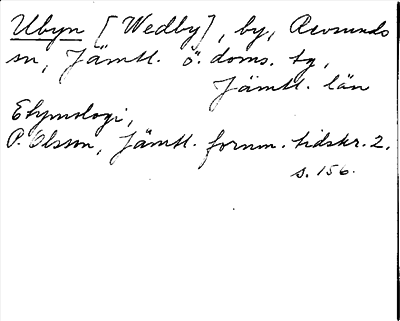 Ubyn [Wedby], by, Revsunds
sn, Jämtl. ö. doms. tg,
Jämtl. län
Etymologi,
P. Olsson, Jämtl. fornm. tidskr. 2.
s. 156.